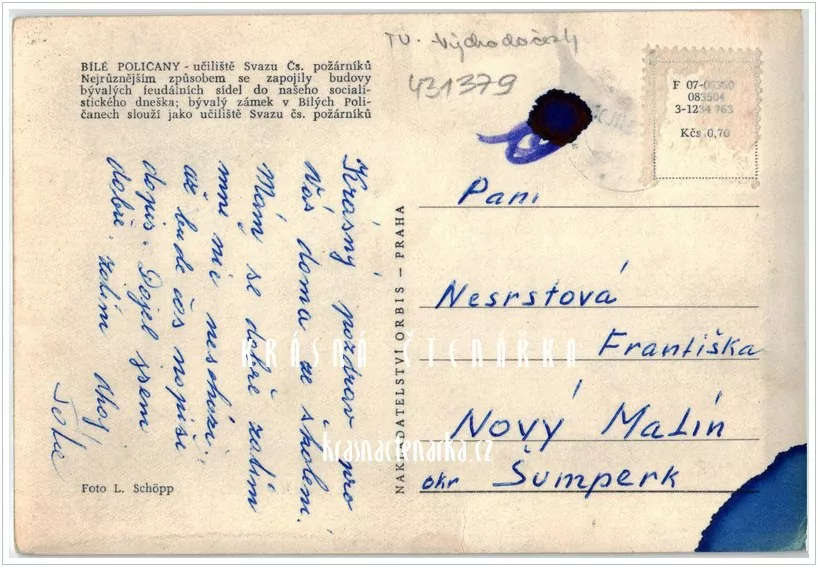 BÍLÉ POLIČANY - učiliště Svazu Čs. požárníků
Nejrůznějším způsobem se zapojily budovy
bývalých feudálních sídel do našeho sociali-
stického dneška; bývalý zámek v Bílých Poli-
čanech slouží jako učiliště Svazu čs. požárníků
TV - Východočeský
431379
F 07-08350
083504
3-1234 763
Kčs 0,70
Krásný pozdrav pro
Vás doma ze školení.
Mám se dobře zatím
mně nic neschází.
až bude čas napíši
dopis. Dojel jsem
dobře. zatím Ahoj
Foto L. Schöpp
NAKLADATELSTVÍ ORBIS — PRAHA
Paní
Nesrstová
Františka
Nový Malín
okr Šumperk
KRÁSNÁ ČTENÁŘKA
krasnactenarka.cz